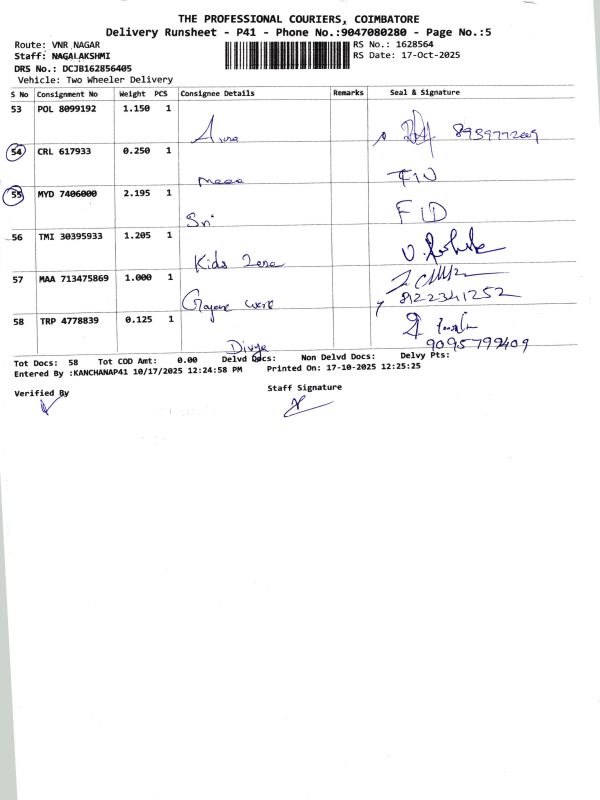 THE PROFESSIONAL COURIERS, COIMBATORE
Delivery Runsheet - P41 - Phone No.:9047080280 - Page No.:5
Route: VNR NAGAR
RS No.: 1628564
Staff: NAGALAKSHMI
RS Date: 17-Oct-2025
DRS No.: DCJB162856405
Vehicle: Two Wheeler Delivery
S No Consignment No Weight PCS Consignee Details Remarks Seal & Signature
53 POL 8099192 1.150 1
54 CRL 617933 0.250 1
55 MYD 7406000 2.195 1 Sri FID
56 TMI 30395933 1.205 1 Kids Zone
57 MAA 713475869 1.000 1 8122341252
58 TRP 4778839 0.125 1 Divya 9095799409
Tot Docs: 58 Tot COD Amt: 0.00 Delvd Docs: Non Delvd Docs: Delvy Pts:
Entered By :KANCHANAP41 10/17/2025 12:24:58 PM Printed On: 17-10-2025 12:25:25
Verified By
Staff Signature